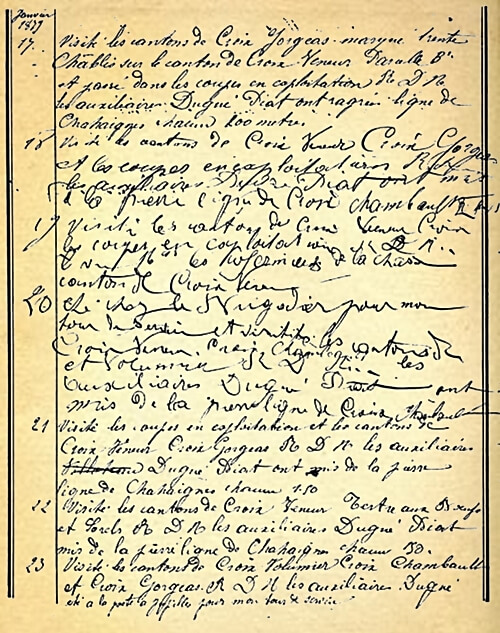 Janvier
1877
17. Visité les cantons de Croix Gorgeas marqué trente
Chablis sur le canton de Croix Veneur Parcelle B.
et passé dans les coupes en exploitation R D N
les auxiliaires Dugué Diat ont ragréé ligne de
Chahaignes chacun 100 metres
18 Visité les cantons de Croix Veneur Croix Gorgeas
et les coupes en exploitations R D N
les auxiliaires Dugué Diat ont mis
de la pierre ligne de Croix Chambault
19 Visité les cantons de Croix Veneur Croix
les coupes en exploitation R D N
les de la chasse
canton de Croix Veneur
20 été chez le pour mon
tour de service et visité les cantons de
Croix Veneur, Croix
et Volumier R D N les
auxiliaires Dugué Diat ont
mis de la pierre ligne de Croix Chambault
21 Visité les coupes en exploitation et les cantons de
Croix Veneur Croix Gorgeas R D N les auxiliaires
Dugué Diat ont mis de la pierre
ligne de Chahaignes chacun 1.50
22 Visité les cantons de Croix Veneur Tertre aux
et R D N les auxiliaires Dugué Diat
mis de la pierre ligne de Chahaignes chacun 50.
23 Visité les cantons de Croix Volumier Croix Chambault
et Croix Gorgeas R D N les auxiliaires Dugué
été a la poste a pour mon tour de service